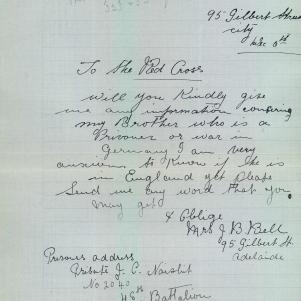 95 Gilbert Street
city
Dec 5th
To the Red Cross
Will you Kindly give
me any information concering
my Brother who is a
Prisoner or war in
Germany I am very
anxious to know if he is
in England yet please
Send me any word that you
may get
& Oblige
Mrs J B Bell
95 Gilbert St
Adelaide
Prisoners address
Private J. C.
No 2040
48th Battalion